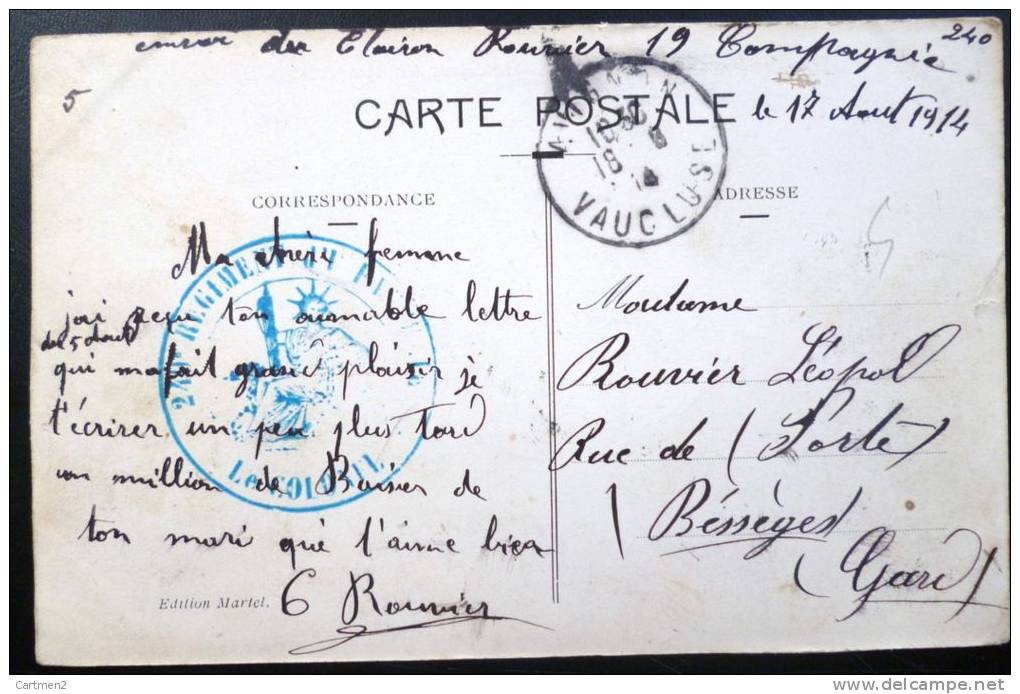 envoi du Clairon Rouvier 19 Compagnie
240
5
CARTE POSTALE
le 17 Aout 1914
AVIGNON
18
VAUCLUSE
CORRESPONDANCE
ADRESSE
REGIMENT
LE COLONEL
Ma chère femme
jai reçu ton aimable lettre
du 5 Aout
qui ma fait grand plaisir je
t'écrirer un peu plus tard
un million de Baiser de
ton mari qui t'aime bien
6 Rouvier
Edition Martel.
Madame
Rouvier Léopol
Rue de (Porte)
Bésséges
(Gard)
Cartmen2
delcampe.net